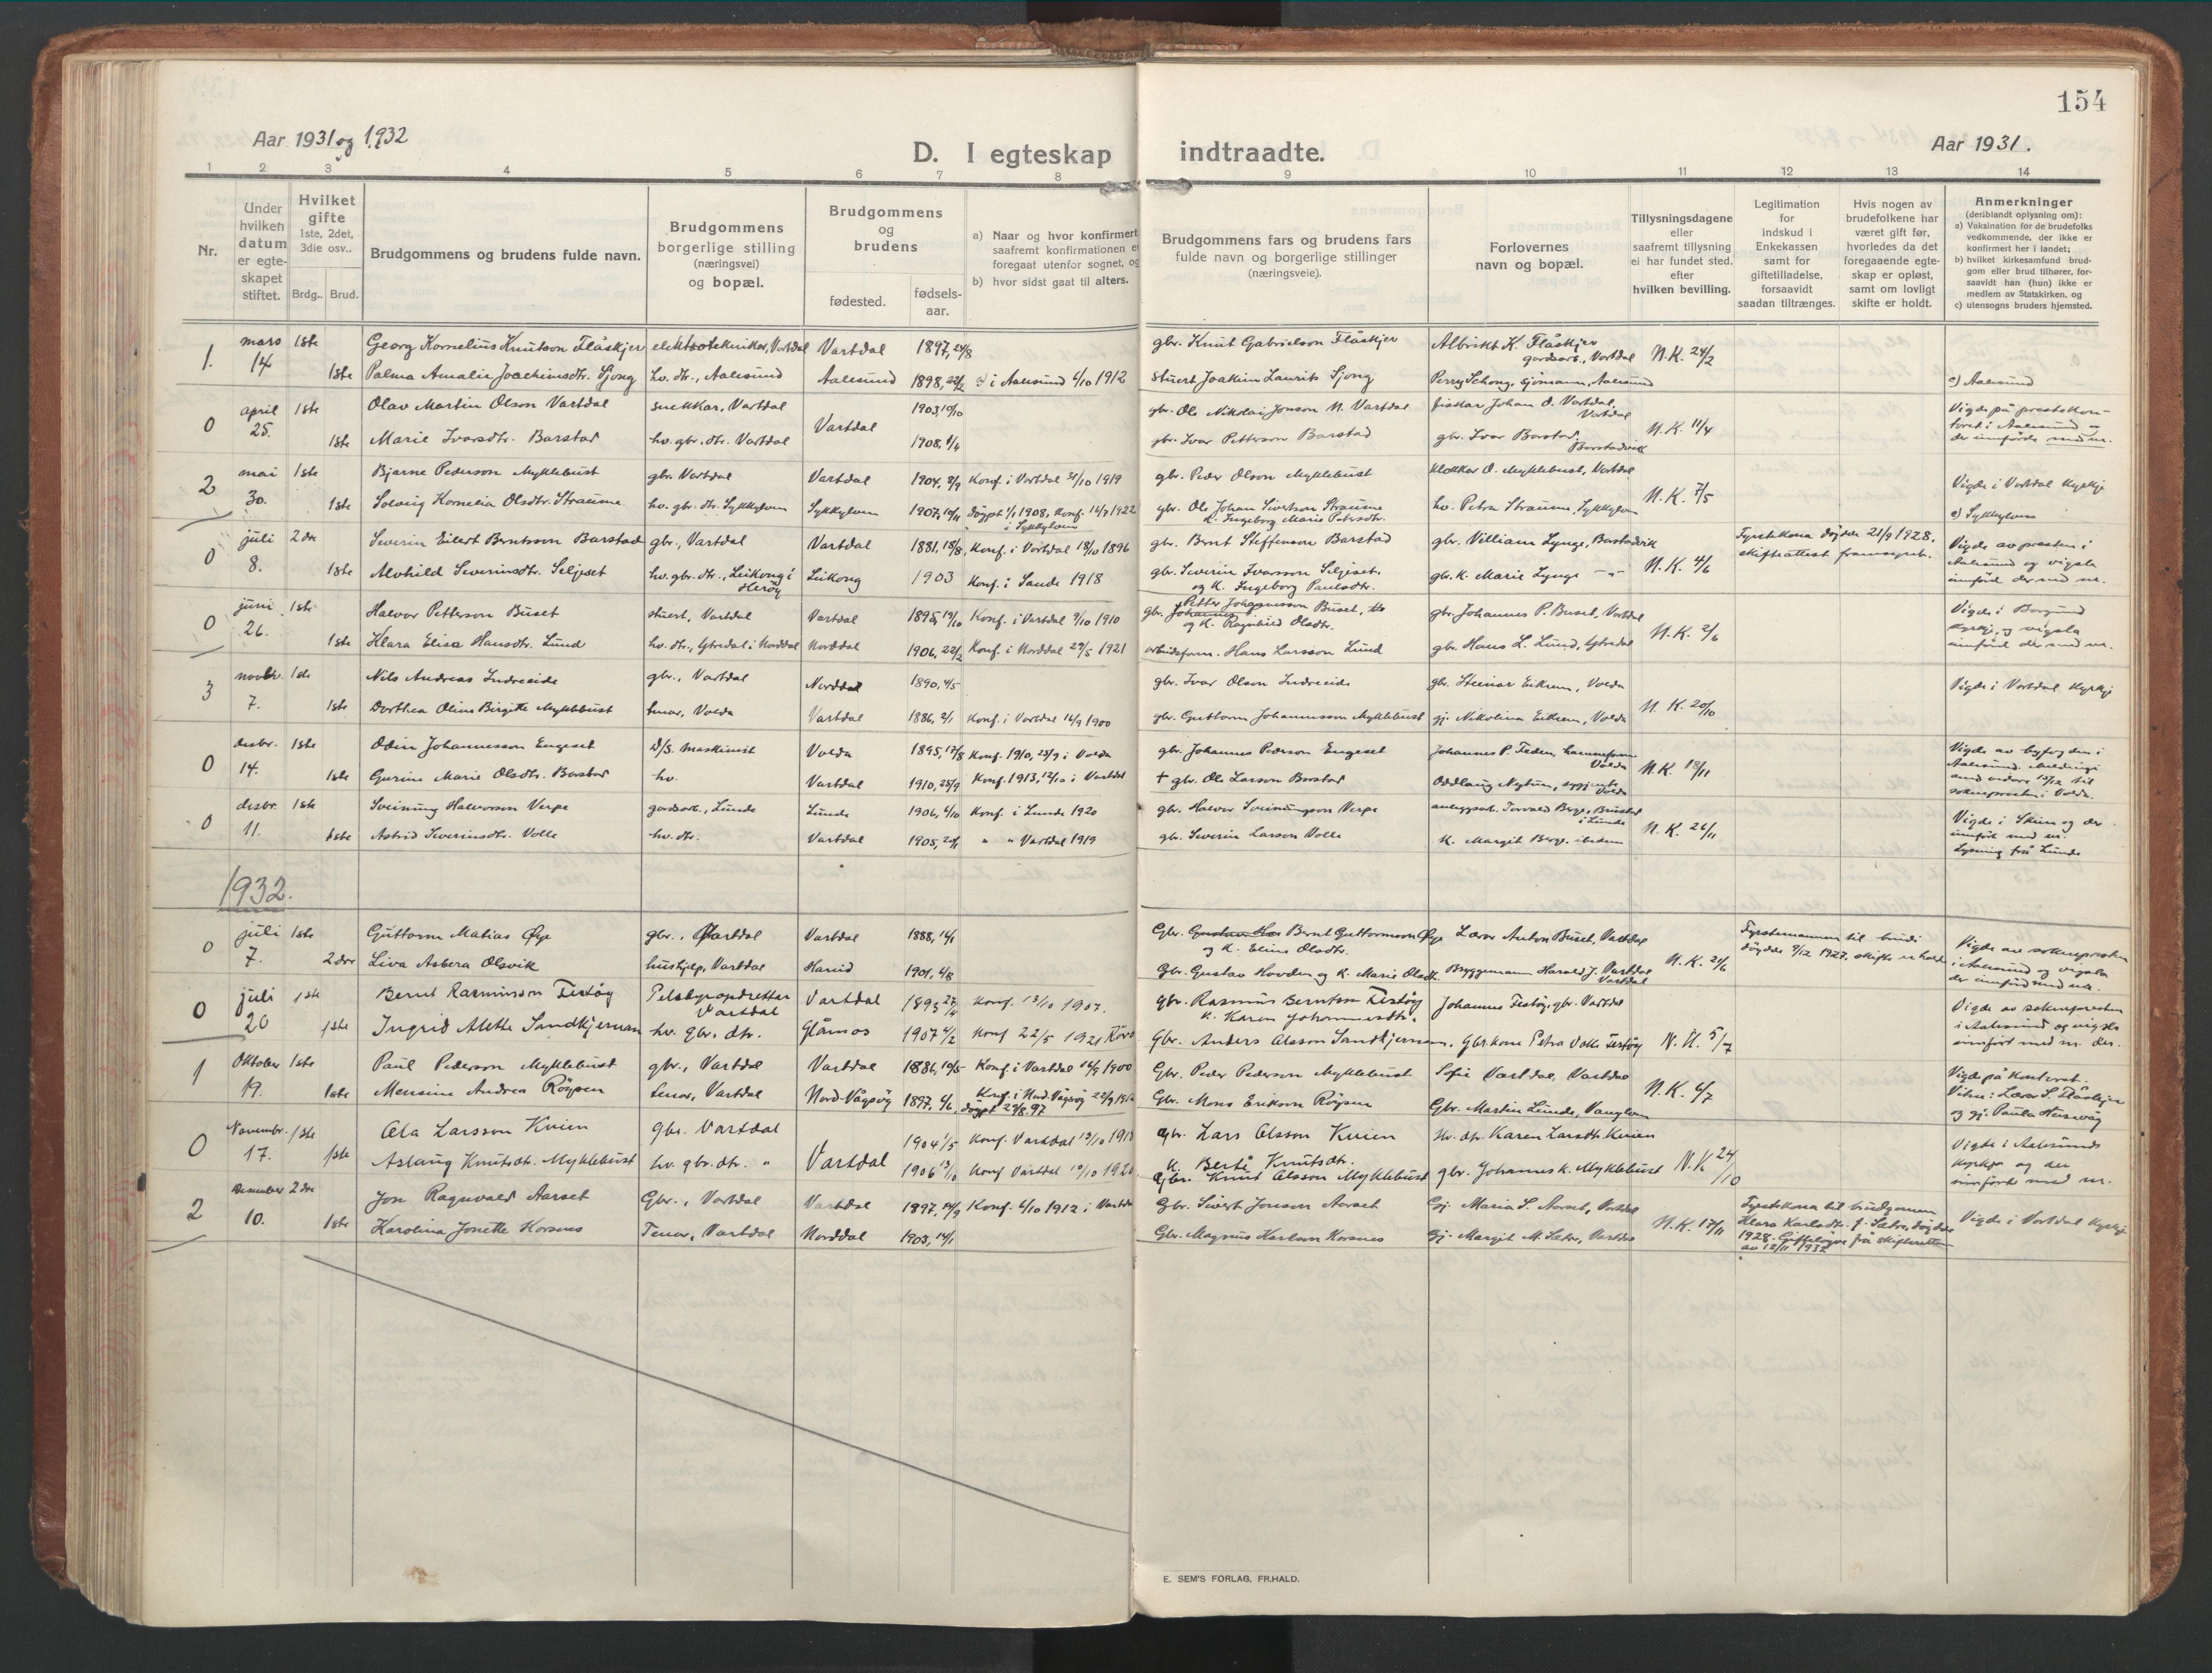 154
Aar 1931 og 1932
D. I egteskap indtraadte.
Aar 1931.
1 2 3 4 5 6 7 8 9 10 11 12 13 14
Nr.
Under hvilken datum er egteskapet stiftet.
Hvilket gifte 1ste, 2det, 3die osv..
Brdg.. Brud.
Brudgommens og brudens fulde navn.
Brudgommens borgerlige stilling (næringsvei) og bopæl.
Brudgommens og brudens
fødested. fødsels-aar.
a) Naar og hvor konfirmert
saafremt konfirmationen e
foregaat utenfor sognet, og
b) hvor sidst gaat til alters.
Brudgommens fars og brudens fars
fulde navn og borgerlige stillinger
(næringsveie).
Forlovernes
navn og bopæl.
Tillysningsdagene
eller
saafremt tillysning
ei har fundet sted,
efter
hvilken bevilling.
Legitimation
for
indskud i
Enkekassen
samt for
giftetilladelse,
forsaavidt
saadan tiltrænges.
Hvis nogen av
brudefolkene har
været gift før,
hvorledes da det
foregaaende egte-
skap er opløst,
samt om lovligt
skifte er holdt.
Anmerkninger
(deriblandt oplysning om):
a) Vaksination for de brudefolks
vedkommende, der ikke er
konfirmert her i landet;
b) hvilket kirkesamfund brud-
gom eller brud tilhører, for-
saavidt han (hun) ikke er
medlem av Statskirken, og
c) utensogns bruders hjemsted.
1. mars 14 1ste Georg Kornelius Knutson Flåskjer elektrotekniker, Vartdal Vartdal 1897, 24/8 gbr. Knut Gabrielson Flåskjer Albrikt K. Flåskjer gardsarb., Vartdal N.K. 24/2
1ste Palma Amalie Joachimsdtr. Sjong hv. dtr., Aalesund Aalesund 1898, 22/2 a) i Aalesund 6/10 1912 stuert Joakim Laurits Sjong sjömann, Aalesund c) Aalesund
0 april 25. 1ste Olav Martin Olson Vartdal snekkar, Vartdal Vartdal 1903 10/10 gbr. Ole Nikolai Jonson N. Vartdal fiskar Johan O. Vartdal, Vartdal N.K. 11/4 Vigde på prestekon-
1ste Marie Ivarsdtr. Barstad hv. gbr. dtr. Vartdal 1908, 4/4 gbr. Ivar Petterson Barstad gbr. Ivar Barstad, Barstadvik toret i Aalesund og
der innförde med nr.
2 mai 30. 1ste Bjarne Pederson Myklebust gbr. Vartdal Vartdal 1904, 8/9 Konf. i Vartdal 31/10 1919 gbr. Peder Olson Myklebust klokkar O. Myklebust, Vartdal N.K. 7/5 Vigde i Vartdal Kyrkje
1ste Solveig Kornelia Olsdtr. Straume hv. gbr. dtr. Sykkylven Sykkylven 1907, 10/11 döypt 1/1 1908, Konf. 16/7 1922 i Sykkylven gbr. Ole Johan Sivertson Straume
K. Ingeborg Marie Petersdtr. hv. Petra Straume, Sykkylven c) Sykkylven
0 juli 8. 2dre Severin Eilert Berntsson Barstad gbr., Vartdal Vartdal 1881, 18/8 Konf. i Vartdal 18/10 1896 gbr. Bernt Steffenson Barstad gbr. Villiam Lynge, Barstadvik N.K. 4/6 Fyrstekona döydde 21/9 1928. skifteattest framsynt. Vigde av presten i
1ste Alvhild Severinsdtr. Seljeset hv. gbr. dtr., Leikong i Heröy Leikong 1903 Konf. i Sande 1918 gbr. Severin Ivarsson Seljeset,
og K. Ingeborg Paulsdtr. gbr. K. Marie Lynge -"- Aalesund og vigsla
innförd der med nr.
0 juni 26. 1ste Halvor Petterson Buset stuert, Vartdal Vartdal 1895, 19/10 Konf. i Vartdal 9/10 1910 gbr. Petter Johannesson Buset,
og K. Ragnhild Olsdtr. gbr. Johannes P. Buset, Vartdal N.K. 2/6 Vigde i Borgund
1ste Klara Elise Hansdtr. Lund hv. dtr., i Norddal Norddal 1906, 22/2 Konf. i Norddal 29/5 1921 arbeidsform. Hans Larsson Lund gbr. Hans L. Lund, Kyrkje, og vigsla
innförd der med nr.
3 novbr. 7. 1ste Nils Andreas Indreeide gbr., Vartdal Norddal 1890, 4/5 gbr. Ivar Olson Indreeide gbr. Steinar Eikrem, Volda N.K. 20/10 Vigde i Vartdal Kyrkje
1ste Dorthea Oline Birgitte Myklebust tenar, Volda Vartdal 1886, 2/1 Konf. i Vartdal 16/9 1900 gbr. Guttorm Johannesson Myklebust gj. Nikolina Eikrem, Volda
0 desbr. 14. 1ste Odin Johannesson Engeset D/S. maskinist Volda 1895, 17/8 Konf. 1910, 25/9 i Volda gbr. Johannes Pederson Engeset Johannes P. Volda N.K. 18/11 Vigde av byfogden i
1ste Gurine Marie Olsdtr. Barstad hv. Vartdal 1910, 25/9 Konf. 1913, 12/10 i Vartdal † gbr. Ole Larson Barstad Oddlaug Nytun, Volda Aalesund. Meldinga
til
sokneprest i Volda.
0 desbr. 11. 1ste Sveinung Halvorson Verpe gardsarb., Lunde Lunde 1906, 6/10 Konf. i Lunde 1920 gbr. Halvor Sveinungson Verpe anleggsarb. Torvald Berge, i Lunde N.K. 26/11 Vigde i Skien og der
1ste Astrid Severinsdtr. Volle hv. dtr. Vartdal 1905, 20/1 " " Vartdal 1919 gbr. Severin Larson Volle K. Margit Berge. ibidem innfört med nr.
Lysning frå Lunde
1932.
0 juli 7. 1ste Guttorm Matias Øye gbr., Vartdal Vartdal 1888, 14/1 Gbr. Bernt Guttormson Øye
og K. Eline Olsdtr. Lærar Anton Buset, Vartdal N.K. 21/6 Fyrstemannen til brudi
döydde 9/12 1927. skifte er halde Vigde av soknepresten
2dre Liva Asbera Olsvik hushjelp, Vartdal Hareid 1901, 4/8 Gbr. Gustav Hovden og K. Marie Olsdtr. Bryggemann Harald J. Vartdal Vartdal i Aalesund og vigsla
der innförd med nr.
0 juli 20 1ste Bernt Rasmusson Festöy Pelsdyropdretter Vartdal Vartdal 1893 27/4 Konf. 13/10 1907. gbr. Rasmus Berntson Festöy
K. Karen Johannesdtr. Johannes Festöy, gbr. Vartdal N.K. 5/7 Vigde av soknepresten
1ste Ingrid Alette Sandkjernan hv. gbr. dtr. Glåmos 1907 4/2 Konf 22/5 1921 Röros Gbr. Anders Olsson Sandkjernan. Gbr. kone Petra Volle Festöy i Aalesund og vigsla
innfört med nr. der.
1 Oktober 19. 1ste Paul Pederson Myklebust gbr., Vartdal Vartdal 1886, 10/5 Konf i Vartdal 16/9 1900 Gbr. Peder Pederson Myklebust Sofie Vartdal, Vartdal N.K. 6/7 Vigde på Kontoret.
1ste Mensine Andrea Röysen tenar, Vartdal Nord-Vågsöy 1897, 4/6 Konf. i Nord-Vågsöy 22/9
döypt 29/8.97 Gbr. Mons Erikson Röysen Gbr. Martin Lunde, Vanylven Vitne: Lærar S. Flåskjer
og gj. Paula
0 Novembr. 17. 1ste Ola Larsson Kvien gbr. Vartdal Vartdal 1904 1/5 Konf. Vartdal 13/10 1918 gbr. Lars Olsson Kvien
K. Berte Knutsdtr. Hv. dtr. Karen Larsdtr. Kvien N.K. 24/10 Vigde i Aalesunds
1ste Aslaug Knutsdtr. Myklebust hv. gbr. dtr. " 1906 13/10 Konf Vartdal 10/10 1920 gbr. Knut Olsson Myklebust gbr. Johannes K. Myklebust Kyrkje og der
innförde med nr.
2 Desember 10. 2dre Jon Ragnvald Aarset Gbr., Vartdal Vartdal 1897, 14/9 Konf. 6/10 1912 i Vartdal Gbr. Sivert Jonson Aarset Gj. Maria S. Aarset, Vartdal N.K. 17/11 Fyrstekona til brudgomen
Klara Karlsdtr. f. Sætre, döydde
1928. Gifteløyve frå skifteretten
av 12/11 1932 Vigde i Vartdal Kyrkje
1ste Karolina Jonette Korsnes Tenar, Vartdal Norddal 1903, 14/1 Gbr. Magnus Karlson Korsnes Gj. Margit M. Sætre, Vartdal
E. SEM'S FORLAG, FR.HALD.